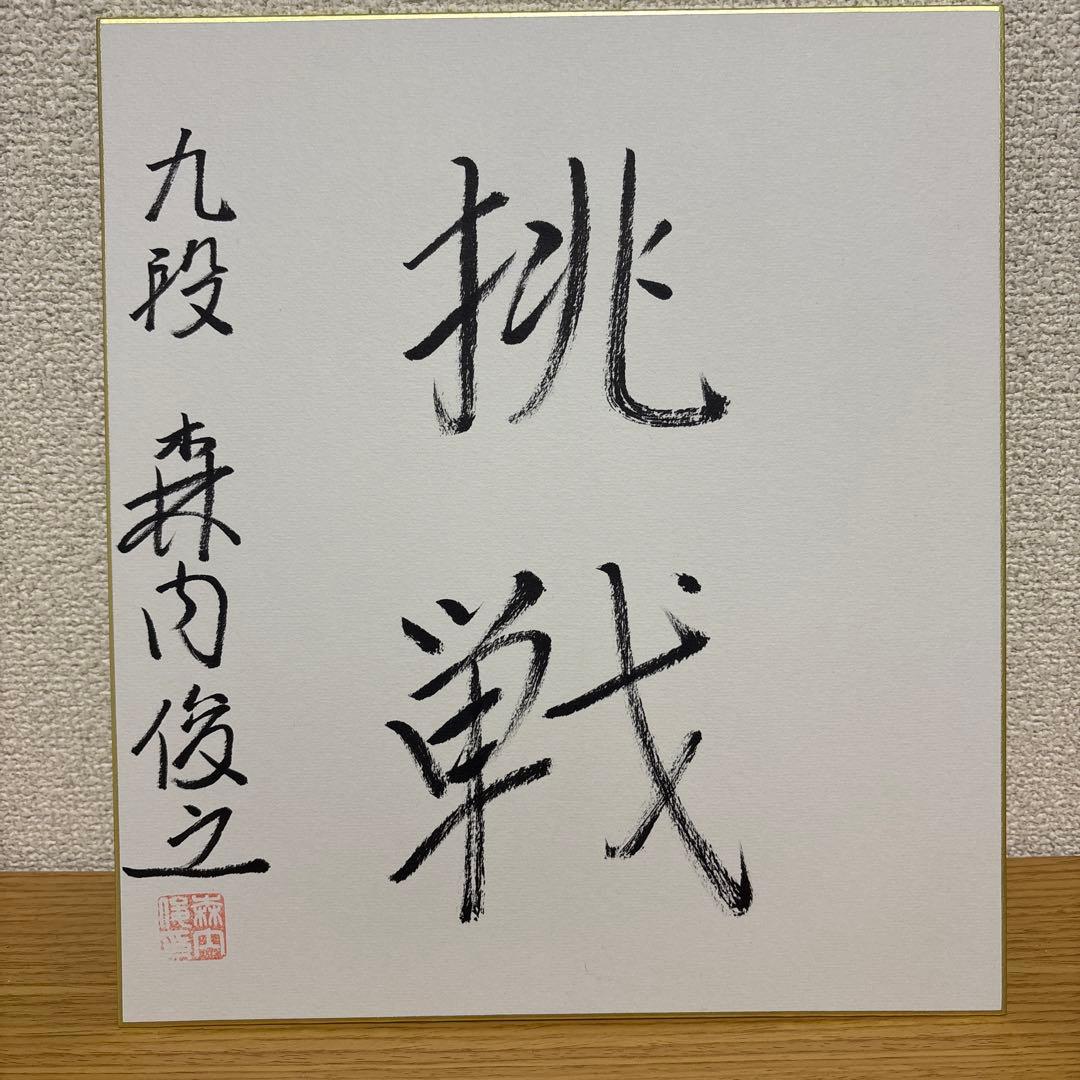 挑戦
九段 森内俊之
森内俊之